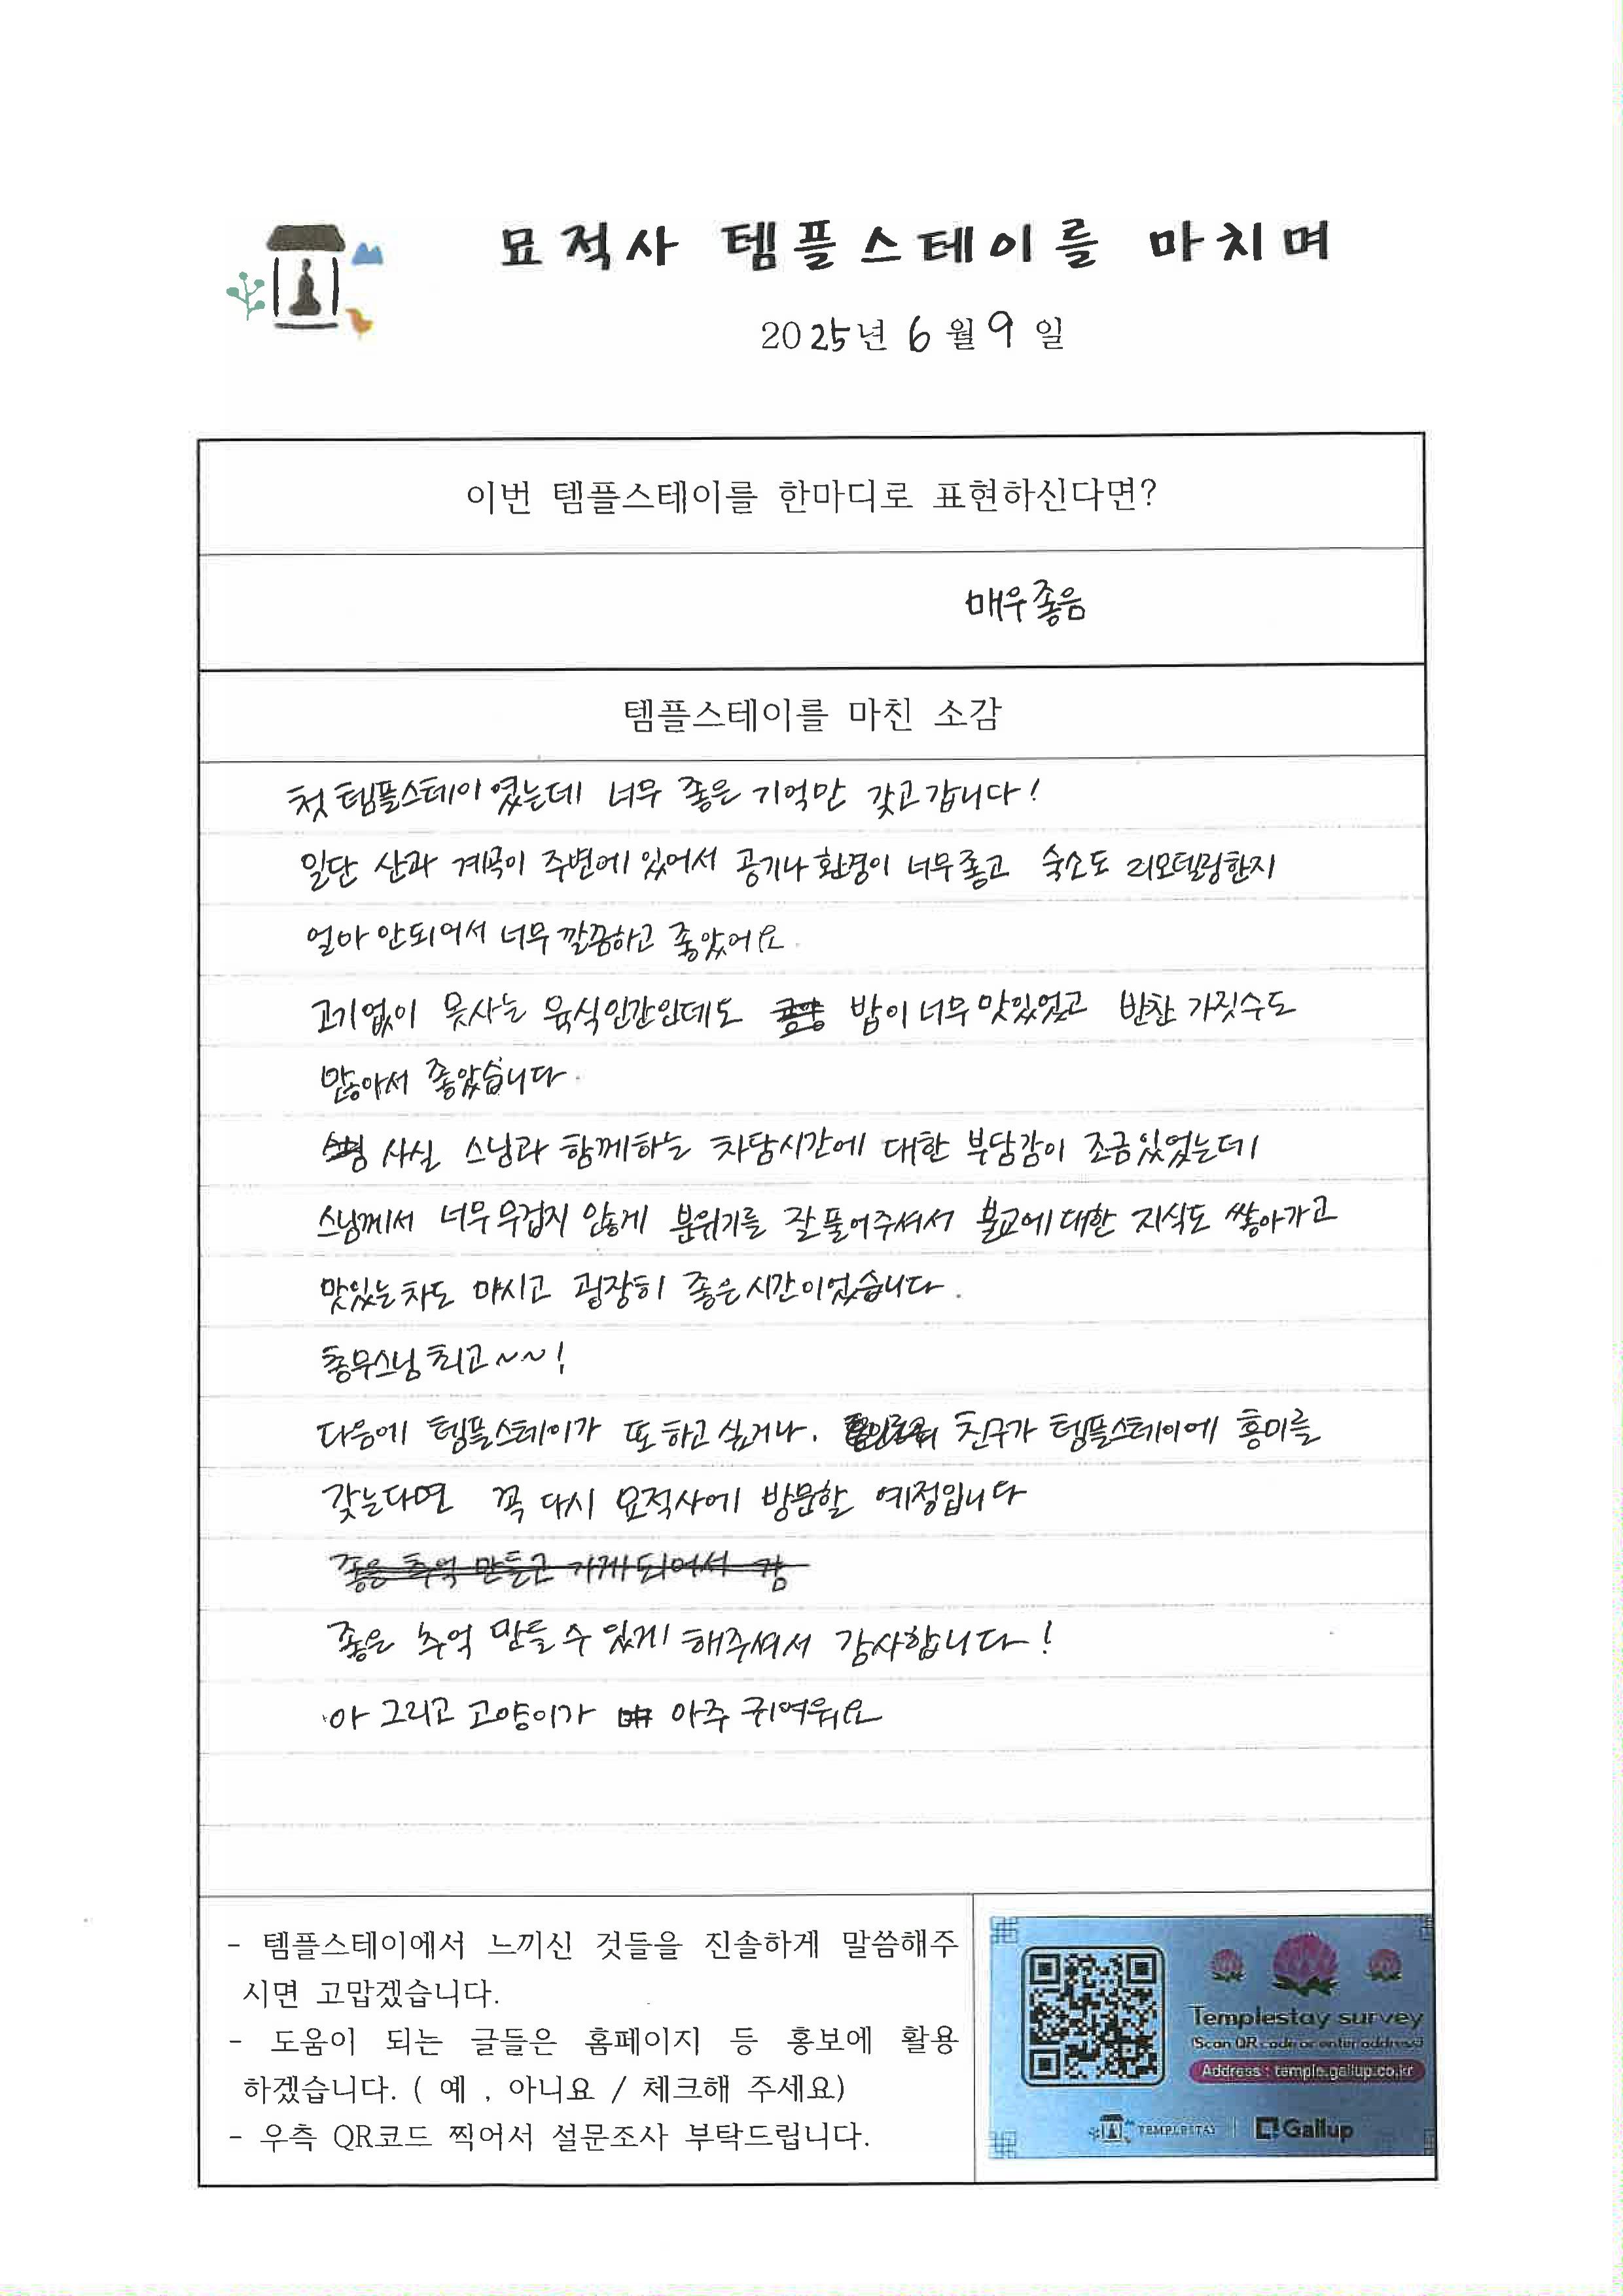 묘적사 템플스테이를 마치며
2025년 6월 9일
이번 템플스테이를 한마디로 표현하신다면?
매우좋음
템플스테이를 마친 소감
첫 템플스테이였는데 너무 좋은 기억만 갖고갑니다!
일단 산과 계곡이 주변에 있어서 공기나 환경이 너무좋고 숙소도 리모델링한지
얼마 안되어서 너무 깔끔하고 좋았어요.
고기없이 못사는 육식인간인데도 밥이 너무 맛있었고 반찬 가짓수도
많아서 좋았습니다.
사실 스님과 함께하는 차담시간에 대한 부담감이 조금있었는데
스님께서 너무 무겁지 않게 분위기를 잘 풀어주셔서 불교에 대한 지식도 쌓아가고
맛있는 차도 마시고 굉장히 좋은 시간이었습니다.
총무스님 최고~~!
다음에 템플스테이가 또 하고 싶거나, 친구가 템플스테이에 흥미를
갖는다면 꼭 다시 묘적사에 방문할 예정입니다
좋은 추억 만들고 가게되어서 감
좋은 추억 만들 수 있게 해주셔서 감사합니다!
아 그리고 고양이가 아주 귀여워요
- 템플스테이에서 느끼신 것들을 진솔하게 말씀해주
시면 고맙겠습니다.
- 도움이 되는 글들은 홈페이지 등 홍보에 활용
하겠습니다. ( 예 , 아니요 / 체크해 주세요)
- 우측 QR코드 찍어서 설문조사 부탁드립니다.
Templestay survey
(Scan QR code or enter address)
Address : temple.gallup.co.kr
TEMPLESTAY
Gallup